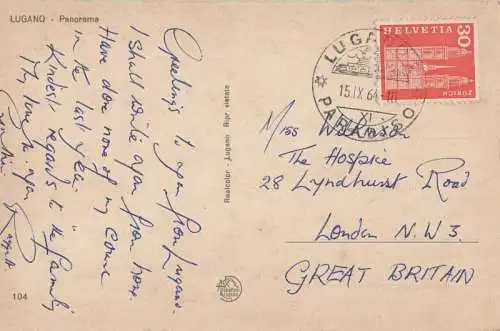 LUGANO - Panorama
Greetings to you from Lugano.
I shall write you from home.
Have done none of my course
in the last year.
Kindest regards to the family
104
Realcolor - Lugano Ripr vietata
LUGANO
15.IX.64
PARADISO
HELVETIA
30
ZÜRICH
Miss
The Hospice
28 Lyndhurst Road
London N.W.3.
GREAT BRITAIN